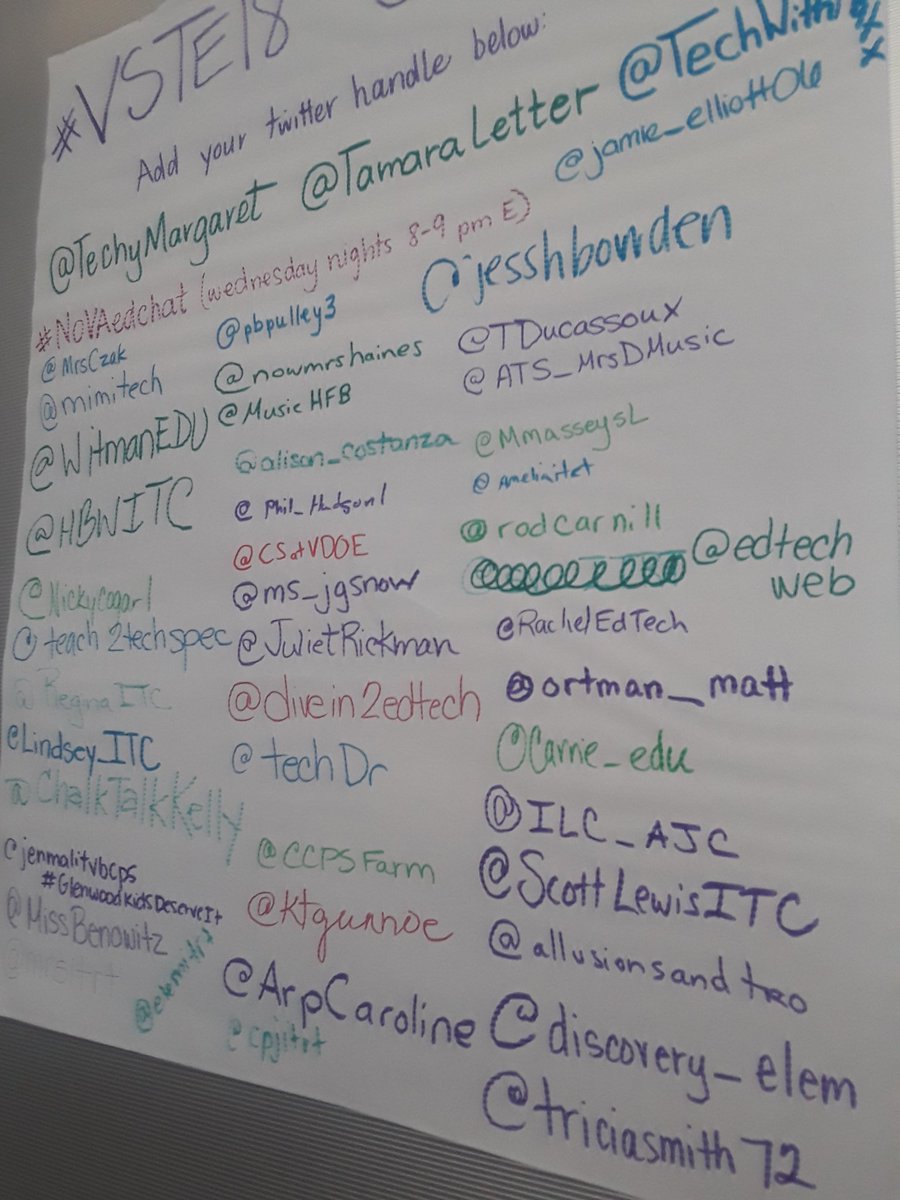 #VSTE18
Add your twitter handle below:
@TechyMargaret @TamaraLetter @TechWith
@jamie_elliott06
#NoVAedchat (wednesday nights 8-9 pm E)
@jesshbowden
@MrsCzak
@mimitech
@WitmanEDU
@HBWITC
@teach2techspec
@RegnaITC
@Lindsey_ITC
@ChalkTalkKelly
@jenmalitvbcps
#GlenwoodKidsDeserveIt
@MissBenowitz
@pbpulley3
@nowmrshaines
@MusicHFB
@alison_costanza
@Phil_Hudson1
@CSatVDOE
@ms_jgsnow
@JulietRickman
@divein2edtech
@techDr
@CCPSFarm
@ktgunnoe
@ArpCaroline
@cpjitrt
@TDucassoux
@ATS_MrsDMusic
@MmasseysL
@rodcarnill
@edtech
web
@RachelEdTech
@ortman_matt
@Carrie_edu
@ILC_AJC
@ScottLewisITC
@allusionsandtro
@discovery_elem
@triciasmith72